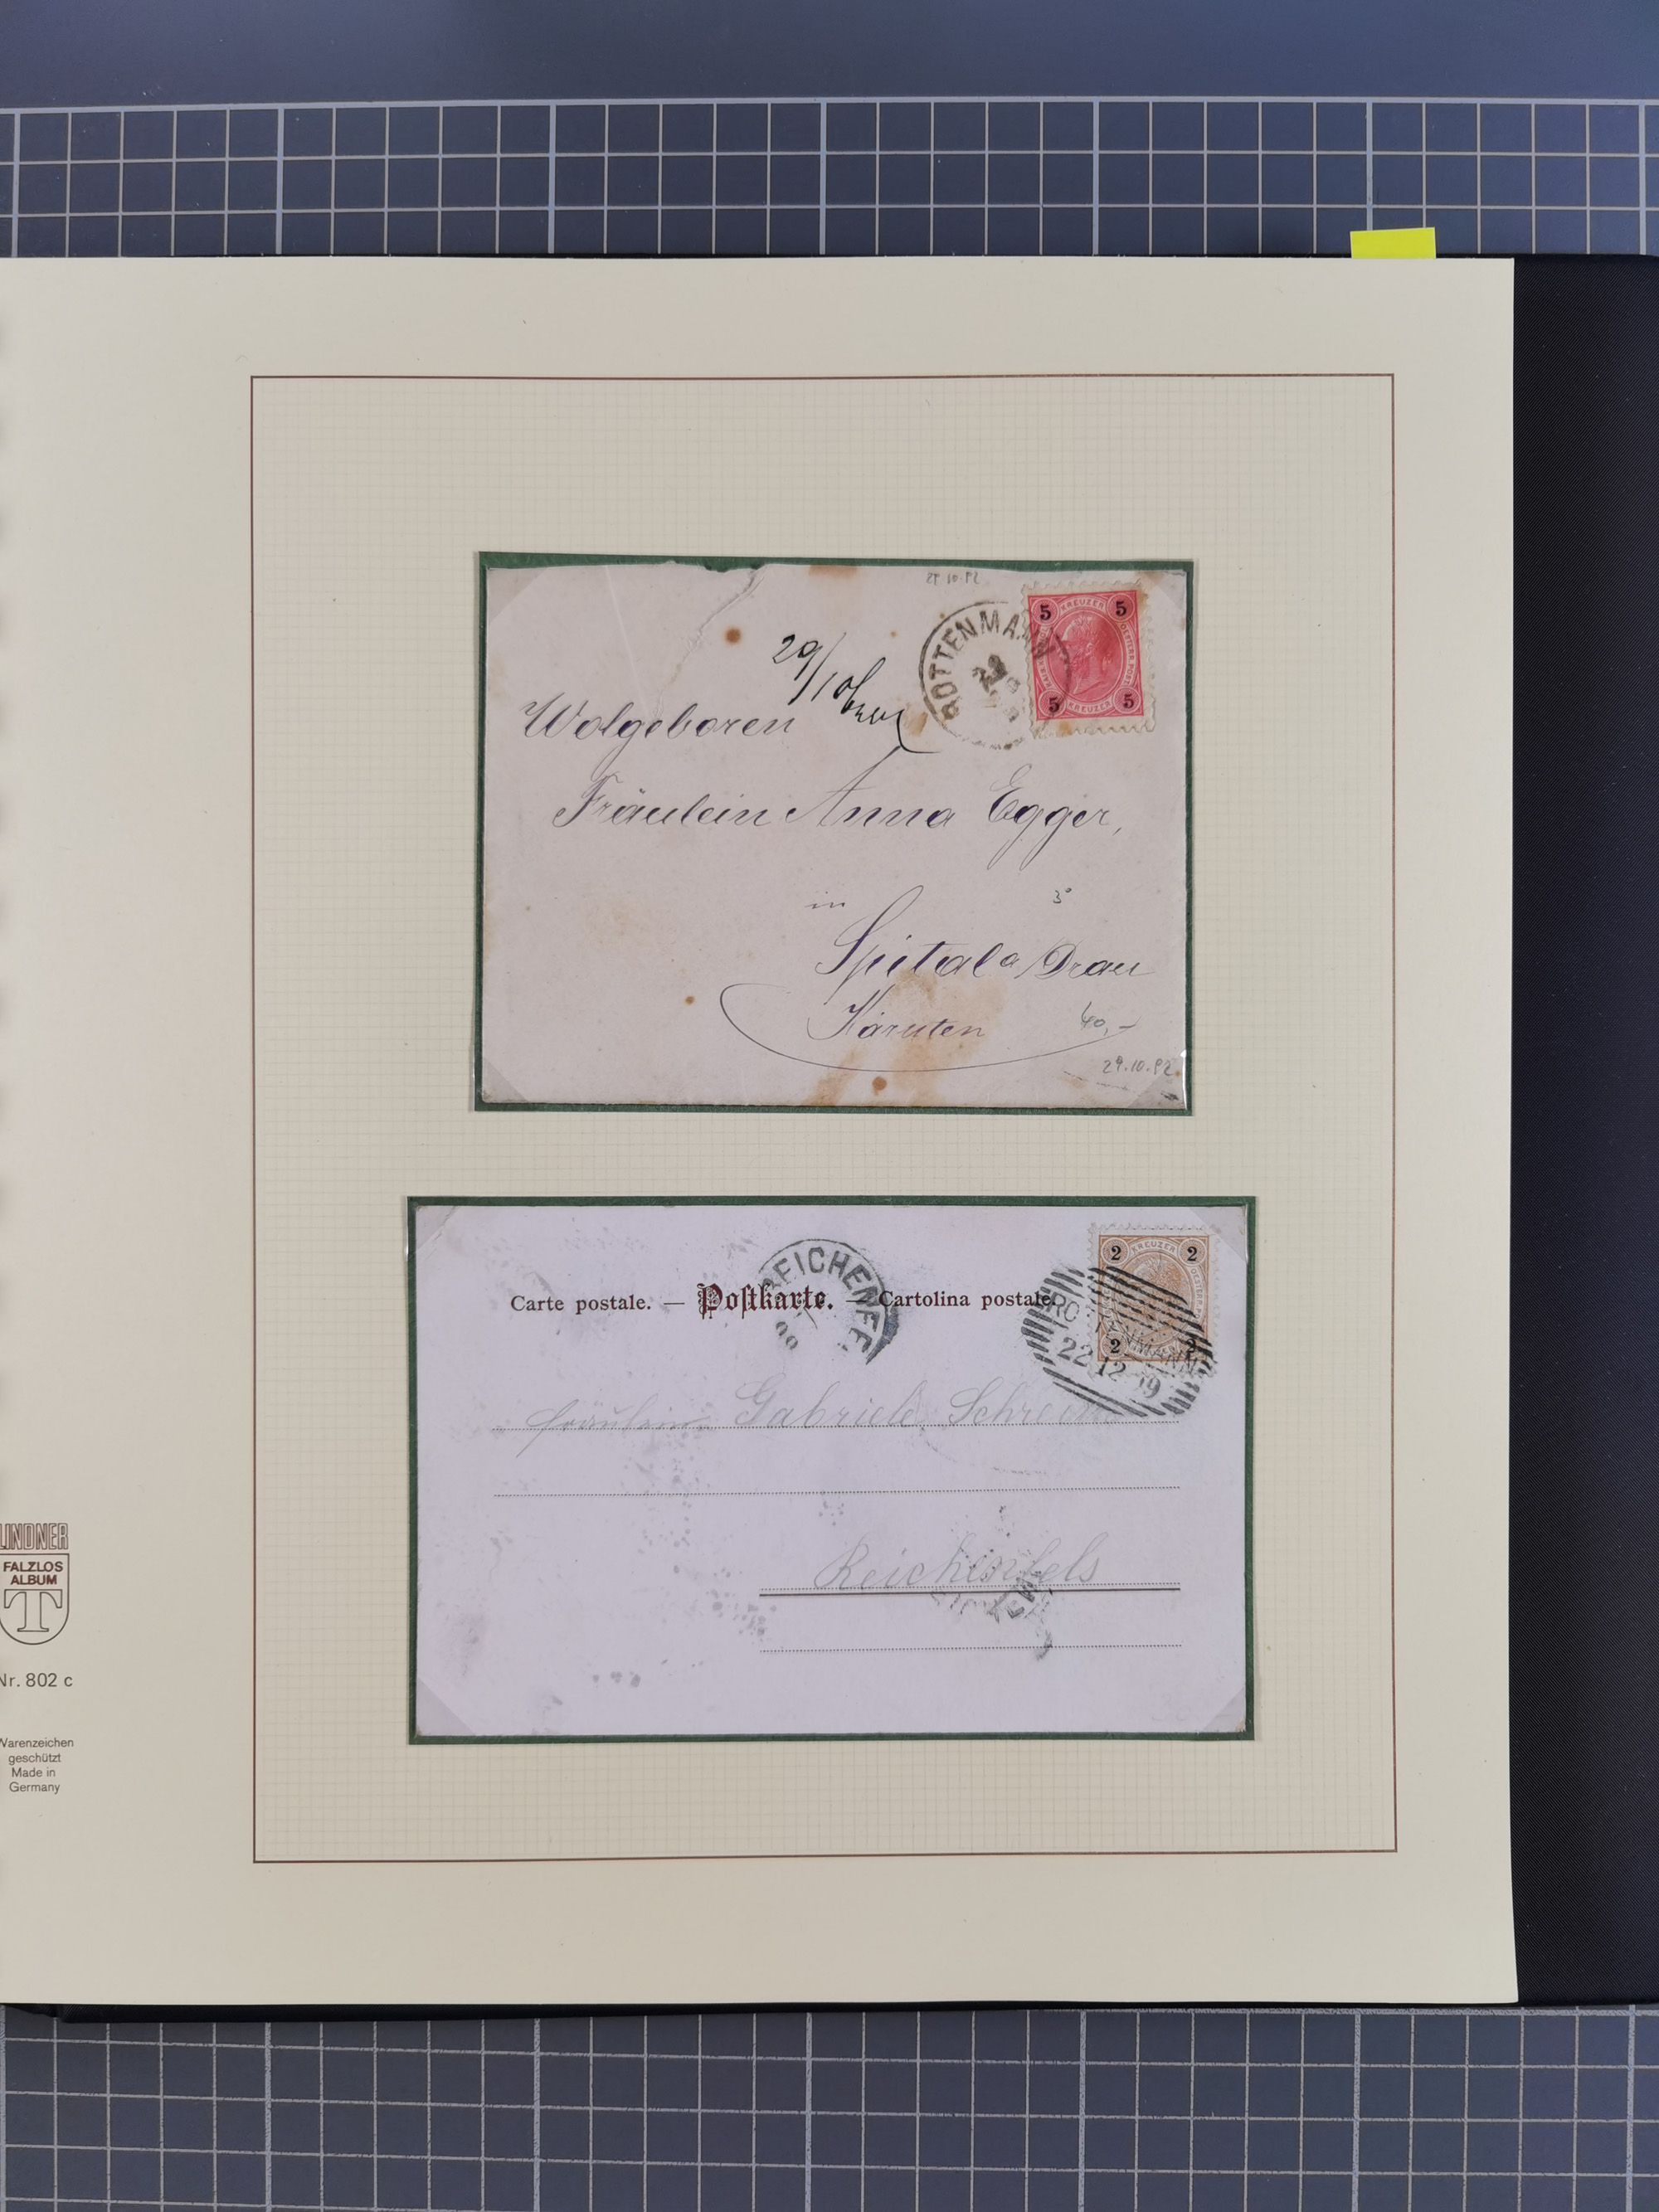 29.10.92
5 KREUZER 5
OESTERR. POST
5 KREUZER 5
ROTTENMANN
29/10
Wolgeboren
Fräulein Anna Egger,
in
Spital a/Drau
Kärnten
40,-
29.10.92
2 KREUZER 2
2
REICHENFE
Carte postale. — Postkarte. — Cartolina postale.
ROTTENMANN
22 12 99
Fräulein Gabriele
Reichenfels
LINDNER
FALZLOS
ALBUM
T
Nr. 802 c
Warenzeichen
geschützt
Made in
Germany